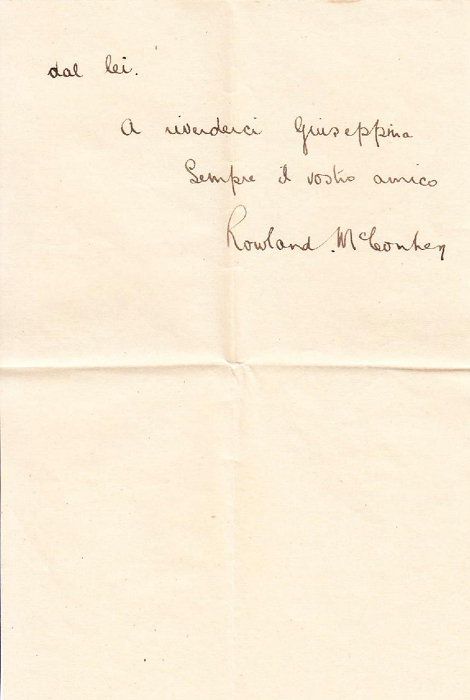 dal lei.
A riverderci Giuseppina
Sempre il vostro amico
Rowland McConkey